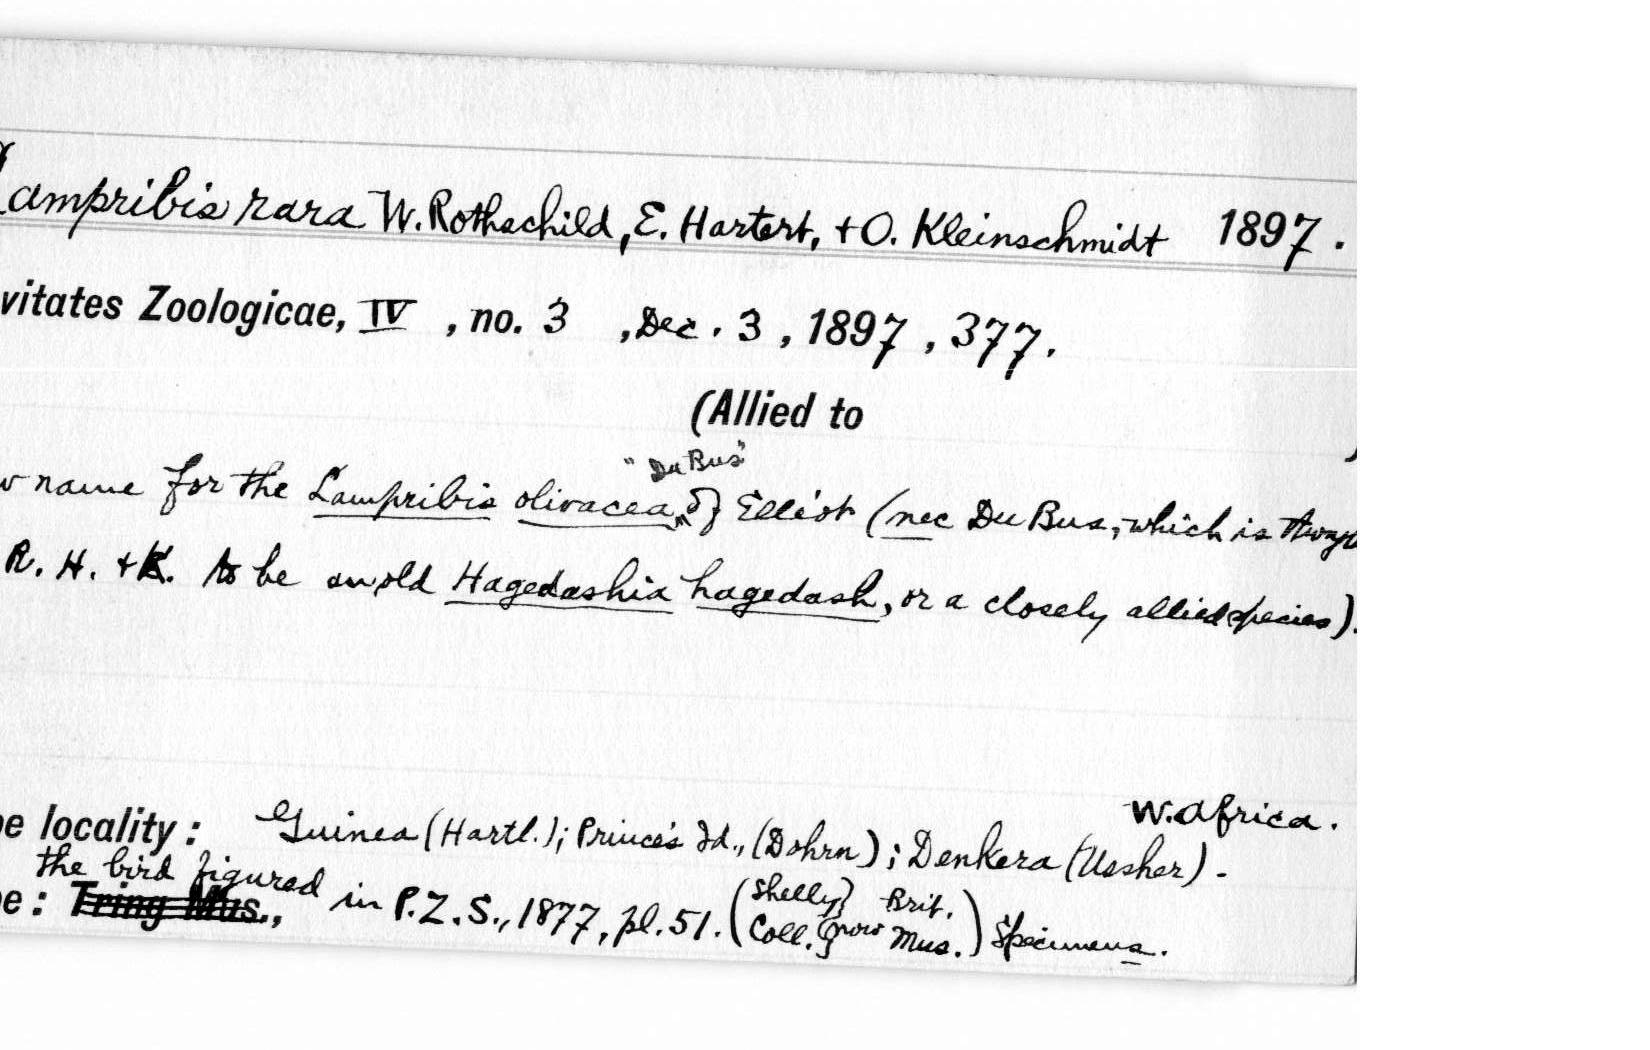 Lampribis rara W. Rothschild, E. Hartert, + O. Kleinschmidt 1897.
vitates Zoologicae, IV , no. 3 , Dec. 3 , 1897 , 377.
(Allied to )
"Du Bus"
w name for the Lampribis olivacea of Elliot (nec Du Bus, which is
R. H. + K. to be an old Hagedashia hagedash, or a closely allied species).
W. Africa.
pe locality : Guinea (Hartl.); Prince's Id., (Dohrn) ; Denkera (Ussher) -
the bird figured in P.Z.S., 1877, pl. 51. (Shelly Coll. } now Brit. Mus.) Specimens.
pe : Tring Mus.,